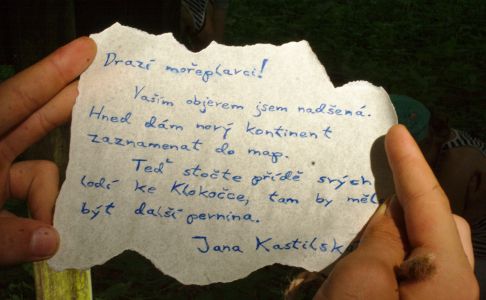 Drazí mořeplavci!
Vaším objevem jsem nadšená.
Hned dám nový kontinent
zaznamenat do map.
Teď stočte přídě svých
lodí ke Klokočce, tam by měl
být další pevnina.
Jana Kastilsk